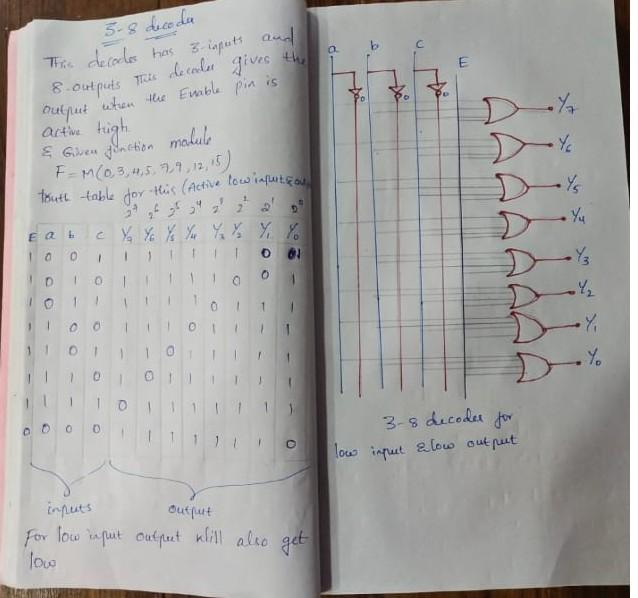 3-8 decoder
This decoder has 3-inputs and
8-outputs This decoder gives the
output when the Enable pin is
active high
& Given function module
F = M(0,3,4,5,7,9,12,15)
Truth table for this (Active low input & out
2⁷ 2⁶ 2⁵ 2⁴ 2³ 2² 2¹ 2⁰
E a b c Y₇ Y₆ Y₅ Y₄ Y₃ Y₂ Y₁ Y₀
1 0 0 1 1 1 1 1 1 1 0
1 0 1 0 1 1 1 1 1 0 0 1
1 0 1 1 1 1 1 1 0 1 1 1
1 1 0 0 1 1 1 0 1 1 1 1
1 1 0 1 1 1 0 1 1 1 1 1
1 1 1 0 1 0 1 1 1 1 1 1
1 1 1 1 0 1 1 1 1 1 1 1
0 0 0 0 1 1 1 1 1 1 1 0
inputs output
For low input output will also get
low
a b c
E
Y₇
Y₆
Y₅
Y₄
Y₃
Y₂
Y₁
Y₀
3-8 decoder for
low input & low output